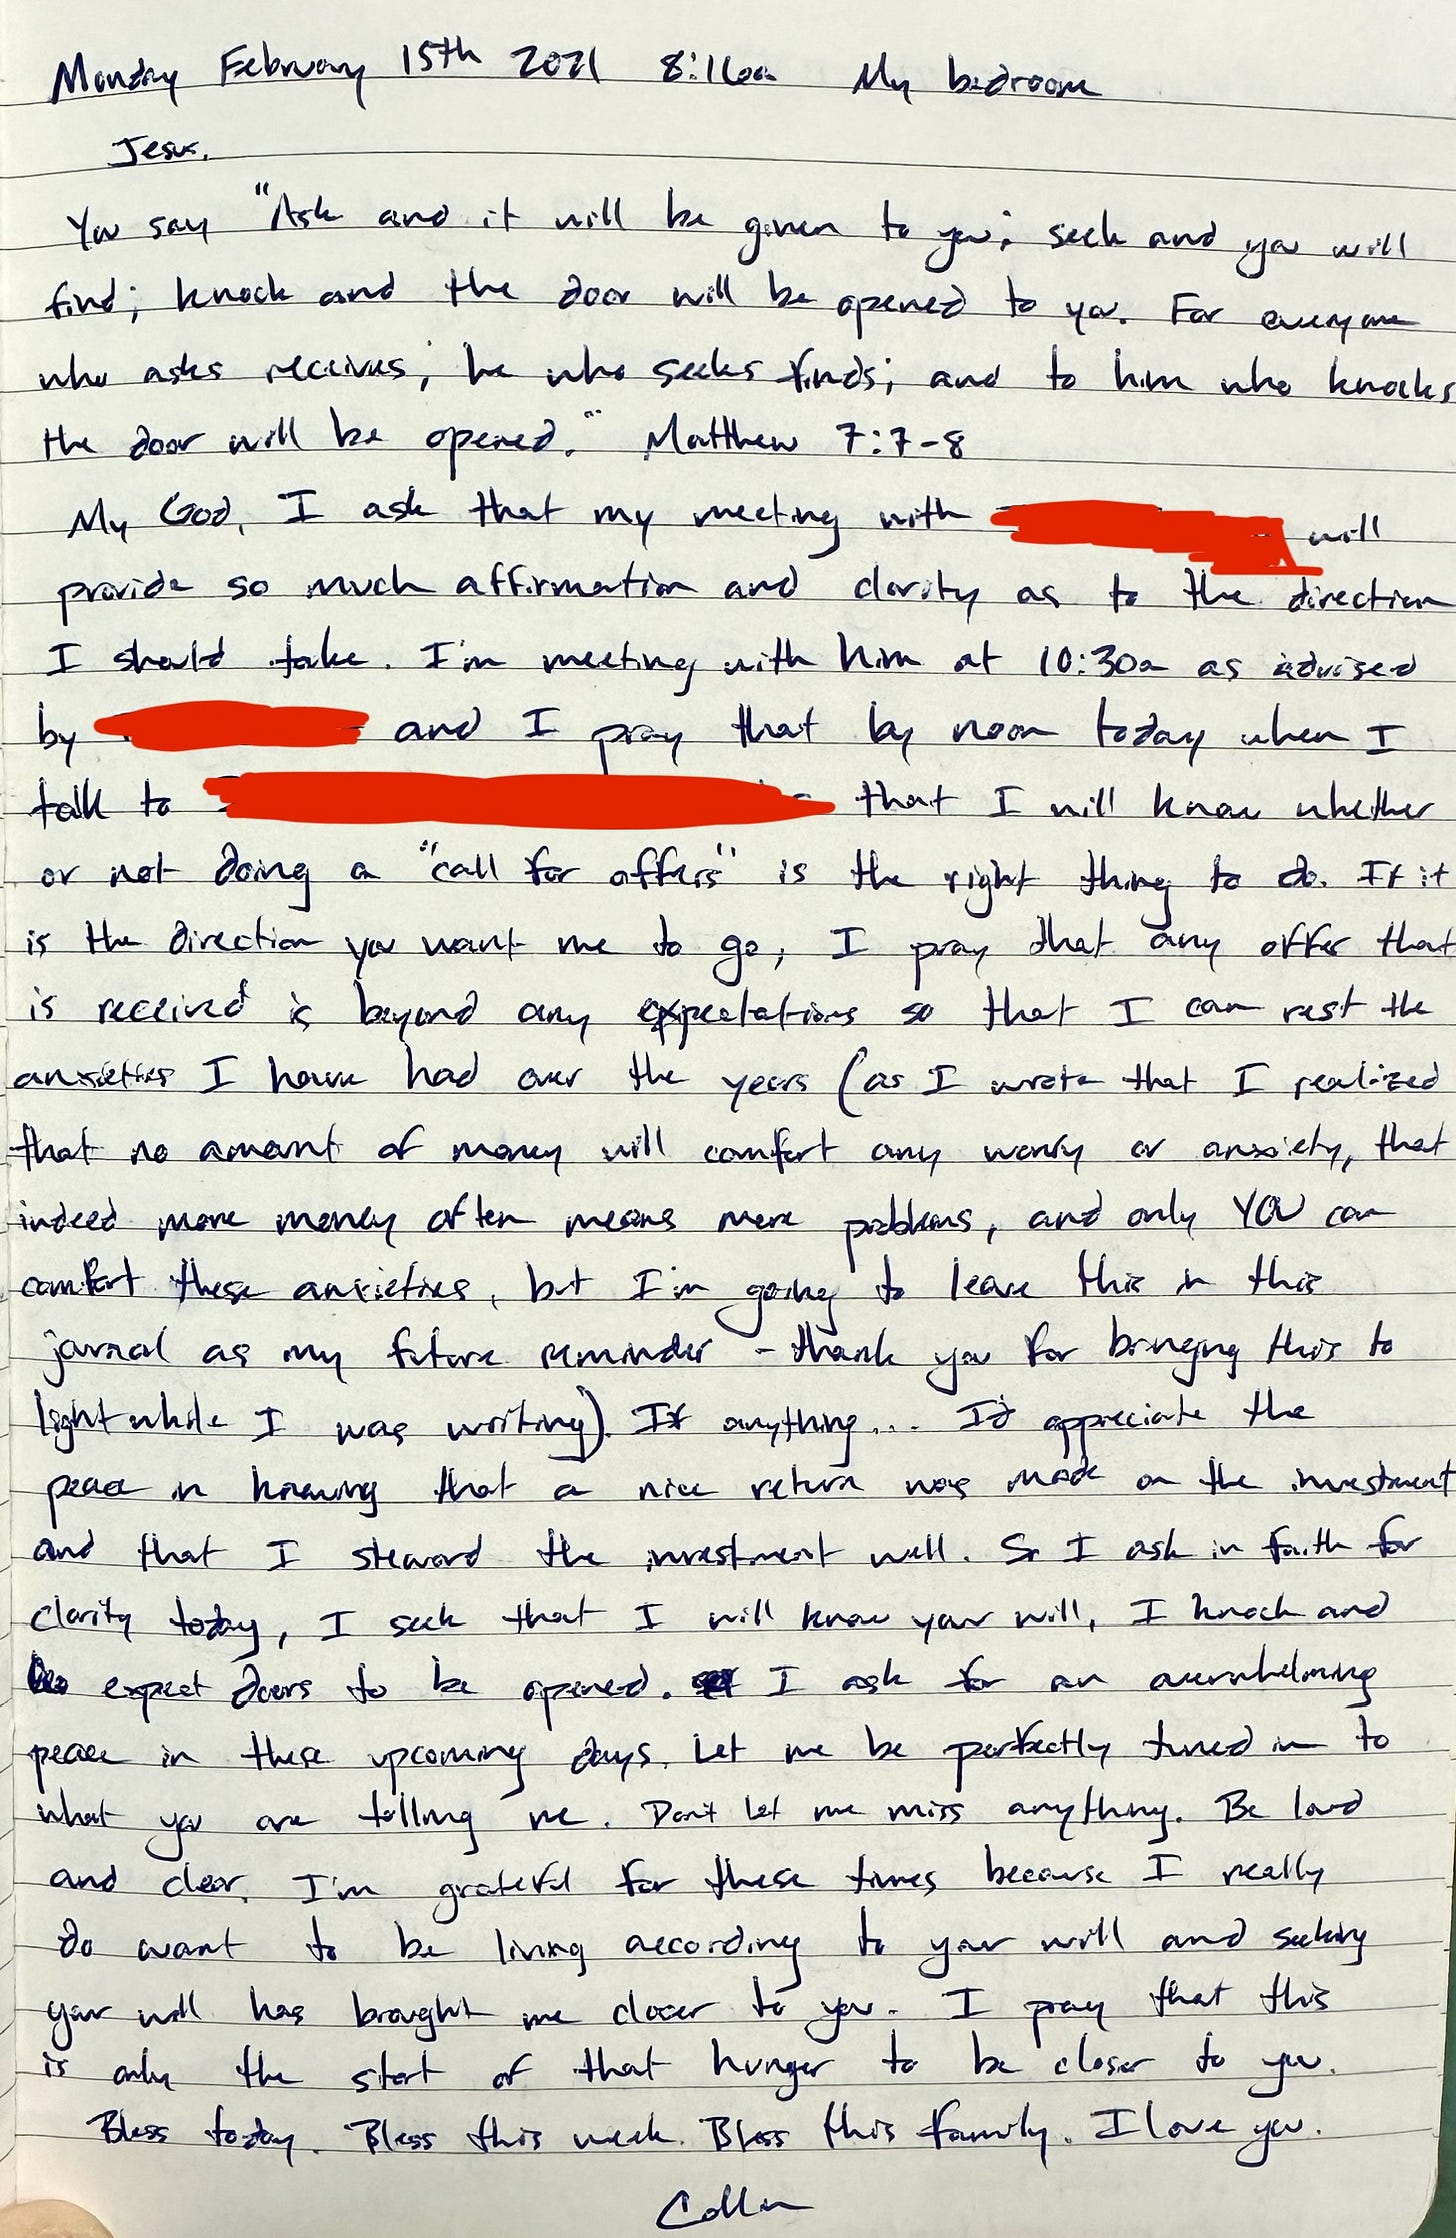 Monday February 15th 2021 8:16am My bedroom
Jesus,
You say "Ask and it will be given to you; seek and you will
find; knock and the door will be opened to you. For everyone
who asks receives; he who seeks finds; and to him who knocks
the door will be opened." Matthew 7:7-8
My God, I ask that my meeting with will
provide so much affirmation and clarity as to the direction
I should take. I'm meeting with him at 10:30a as advised
by and I pray that by noon today when I
talk to that I will know whether
or not doing a "call for offers" is the right thing to do. If it
is the direction you want me to go, I pray that any offer that
is received is beyond any expectations so that I can rest the
anxieties I have had over the years (as I wrote that I realized
that no amount of money will comfort any worry or anxiety, that
indeed more money often means more problems, and only YOU can
comfort these anxieties, but I'm going to leave this in this
journal as my future reminder - thank you for bringing this to
light while I was writing). If anything... I'd appreciate the
peace in knowing that a nice return was made on the investment
and that I steward the investment well. So I ask in faith for
clarity today, I seek that I will know your will, I knock and
expect doors to be opened. I ask for an overwhelming
peace in these upcoming days. Let me be perfectly tuned in to
what you are telling me. Don't let me miss anything. Be loud
and clear. I'm grateful for these times because I really
do want to be living according to your will and seeking
your will has brought me closer to you. I pray that this
is only the start of that hunger to be closer to you.
Bless today. Bless this week. Bless this family. I love you.
Collin